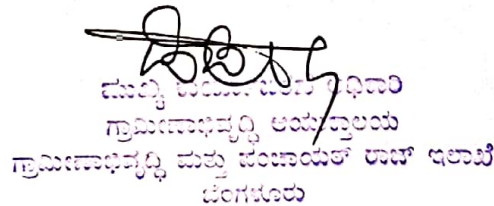 ಮುಖ್ಯ ಅಧಿಕಾರಿ
ಗ್ರಾಮೀಣಾಭಿವೃದ್ಧಿ ಆಯುಕ್ತಾಲಯ
ಗ್ರಾಮೀಣಾಭಿವೃದ್ಧಿ ಮತ್ತು ಪಂಚಾಯತ್ ರಾಜ್ ಇಲಾಖೆ
ಬೆಂಗಳೂರು